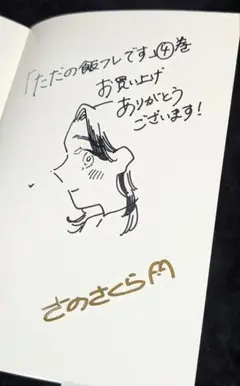 「ただの飯フレです」④巻
お買い上げ
ありがとう
ございます!
さのさくら